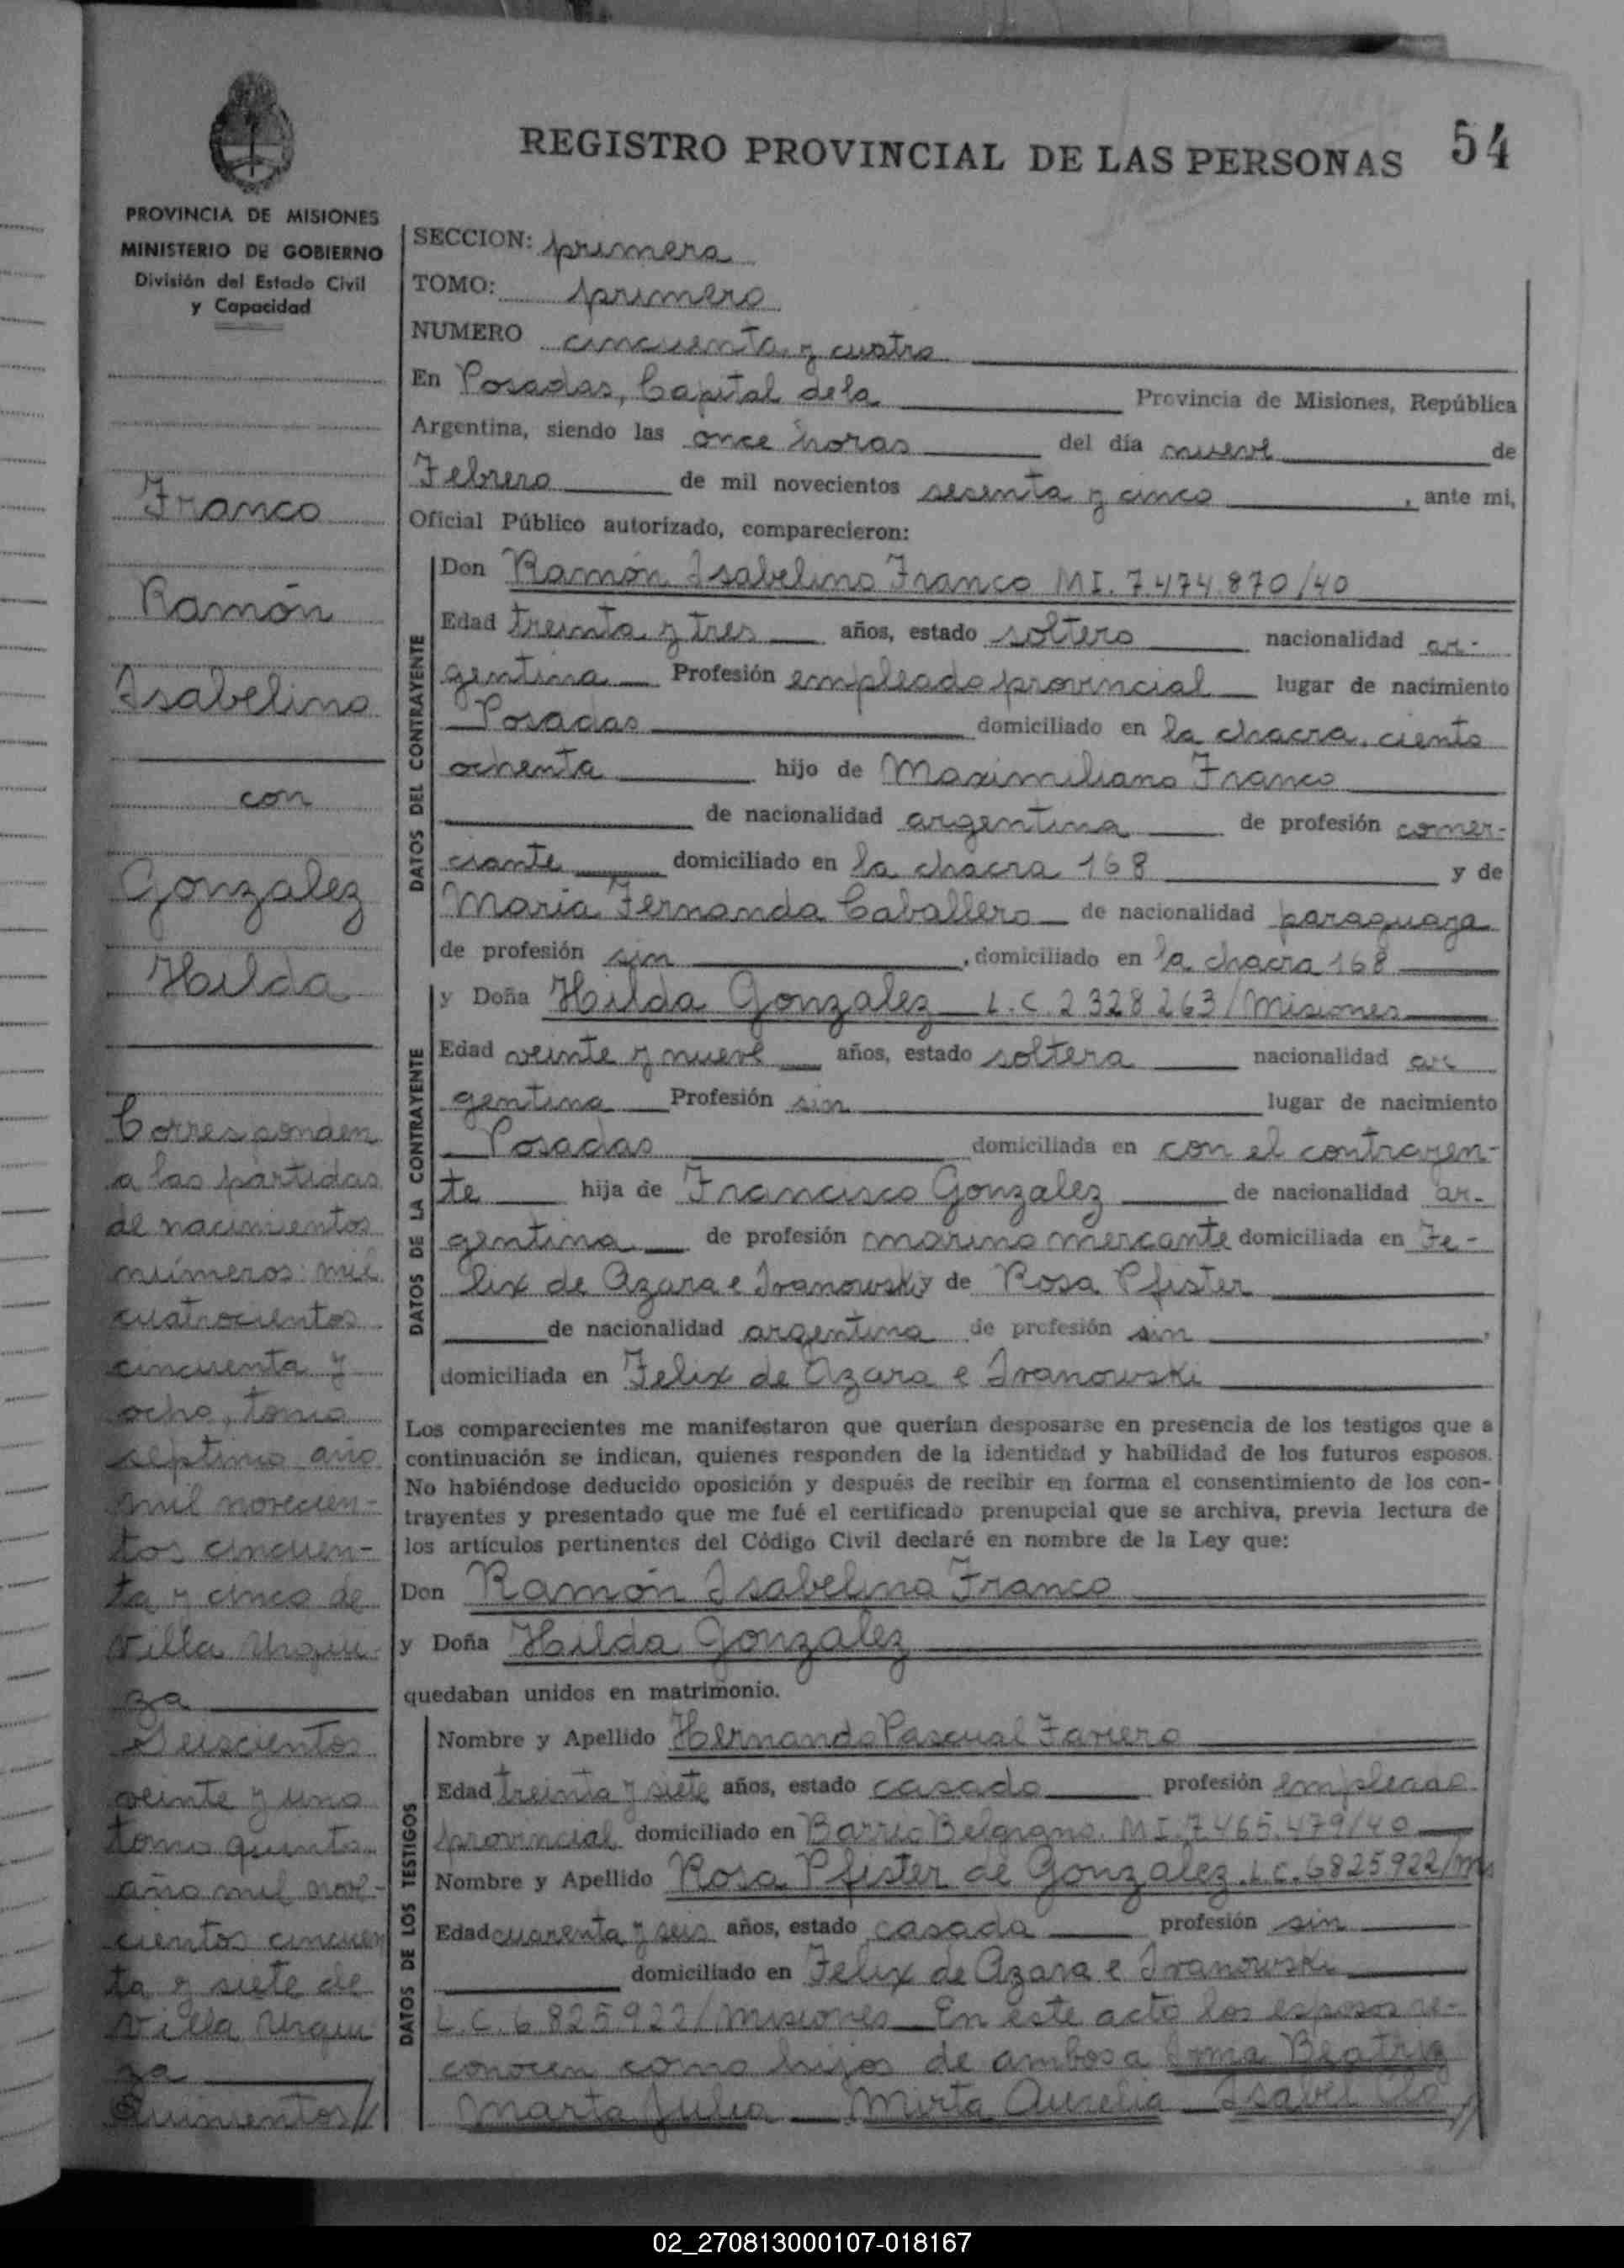 REGISTRO PROVINCIAL DE LAS PERSONAS 54
PROVINCIA DE MISIONES
MINISTERIO DE GOBIERNO
División del Estado Civil
y Capacidad
Franco
Ramón
Isabelino
con
Gonzalez
Hilda
Corresponden
a las partidas
de nacimientos
números: mil
cuatrocientos
cincuenta y
ocho, tomo
septimo año
mil novecien-
tos cincuen-
ta y cinco de
Villa Urqui
za
Seiscientos
veinte y uno
tomo quinto
año mil nove-
cientos cincuen
ta y siete de
Villa Urqui
za
Quinientos//
SECCION: primera
TOMO: primero
NUMERO cincuenta y cuatro
En Posadas, Capital de la Provincia de Misiones, República
Argentina, siendo las once horas del día nueve de
Febrero de mil novecientos sesenta y cinco, ante mi,
Oficial Público autorizado, comparecieron:
DATOS DEL CONTRAYENTE
Don Ramón Isabelino Franco MI. 7.474.870/40
Edad treinta y tres años, estado soltero nacionalidad ar-
gentina Profesión empleado provincial lugar de nacimiento
Posadas domiciliado en la chacra, ciento
ochenta hijo de Maximiliano Franco
de nacionalidad argentina de profesión comer-
ciante domiciliado en la chacra 168 y de
Maria Fernanda Caballero de nacionalidad paraguaya
de profesión sin, domiciliado en la chacra 168
DATOS DE LA CONTRAYENTE
y Doña Hilda Gonzalez L.C. 2.328.263/Misiones
Edad veinte y nueve años, estado soltera nacionalidad ar
gentina Profesión sin lugar de nacimiento
Posadas domiciliada en con el contrayen-
te hija de Francisco Gonzalez de nacionalidad ar-
gentina de profesión marino mercante domiciliada en Fe-
lix de Azara e Ivanowski y de Rosa Pfister
de nacionalidad argentina de profesión sin,
domiciliada en Felix de Azara e Ivanowski
Los comparecientes me manifestaron que querían desposarse en presencia de los testigos que a
continuación se indican, quienes responden de la identidad y habilidad de los futuros esposos.
No habiéndose deducido oposición y después de recibir en forma el consentimiento de los con-
trayentes y presentado que me fué el certificado prenupcial que se archiva, previa lectura de
los artículos pertinentes del Código Civil declaré en nombre de la Ley que:
Don Ramón Isabelino Franco
y Doña Hilda Gonzalez
quedaban unidos en matrimonio.
DATOS DE LOS TESTIGOS
Nombre y Apellido Hernando Pascual
Edad treinta y siete años, estado casado profesión empleado
provincial domiciliado en Barrio Belgrano. MI. 7.465.479/40
Nombre y Apellido Rosa Pfister de Gonzalez. L.C. 6825922/Ms
Edad cuarenta y seis años, estado casada profesión sin
domiciliado en Felix de Azara e Ivanowski
L.C. 6.825.922/Misiones En este acto los esposos re-
conocen como hijos de ambos a Irma Beatriz
Marta Julia Mirta Aurelia Isabel
02_270813000107-018167